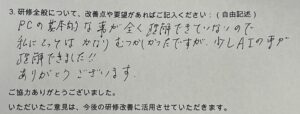 3. 研修全般について、改善点や要望があればご記入ください：(自由記述)
PCの基本的な事が全く理解できていないので
私にとってはかなりむつかしかったですが、少しAIの事が
理解できました!!
ありがとうございます.
ご協力ありがとうございました。
いただいたご意見は、今後の研修改善に活用させていただきます。